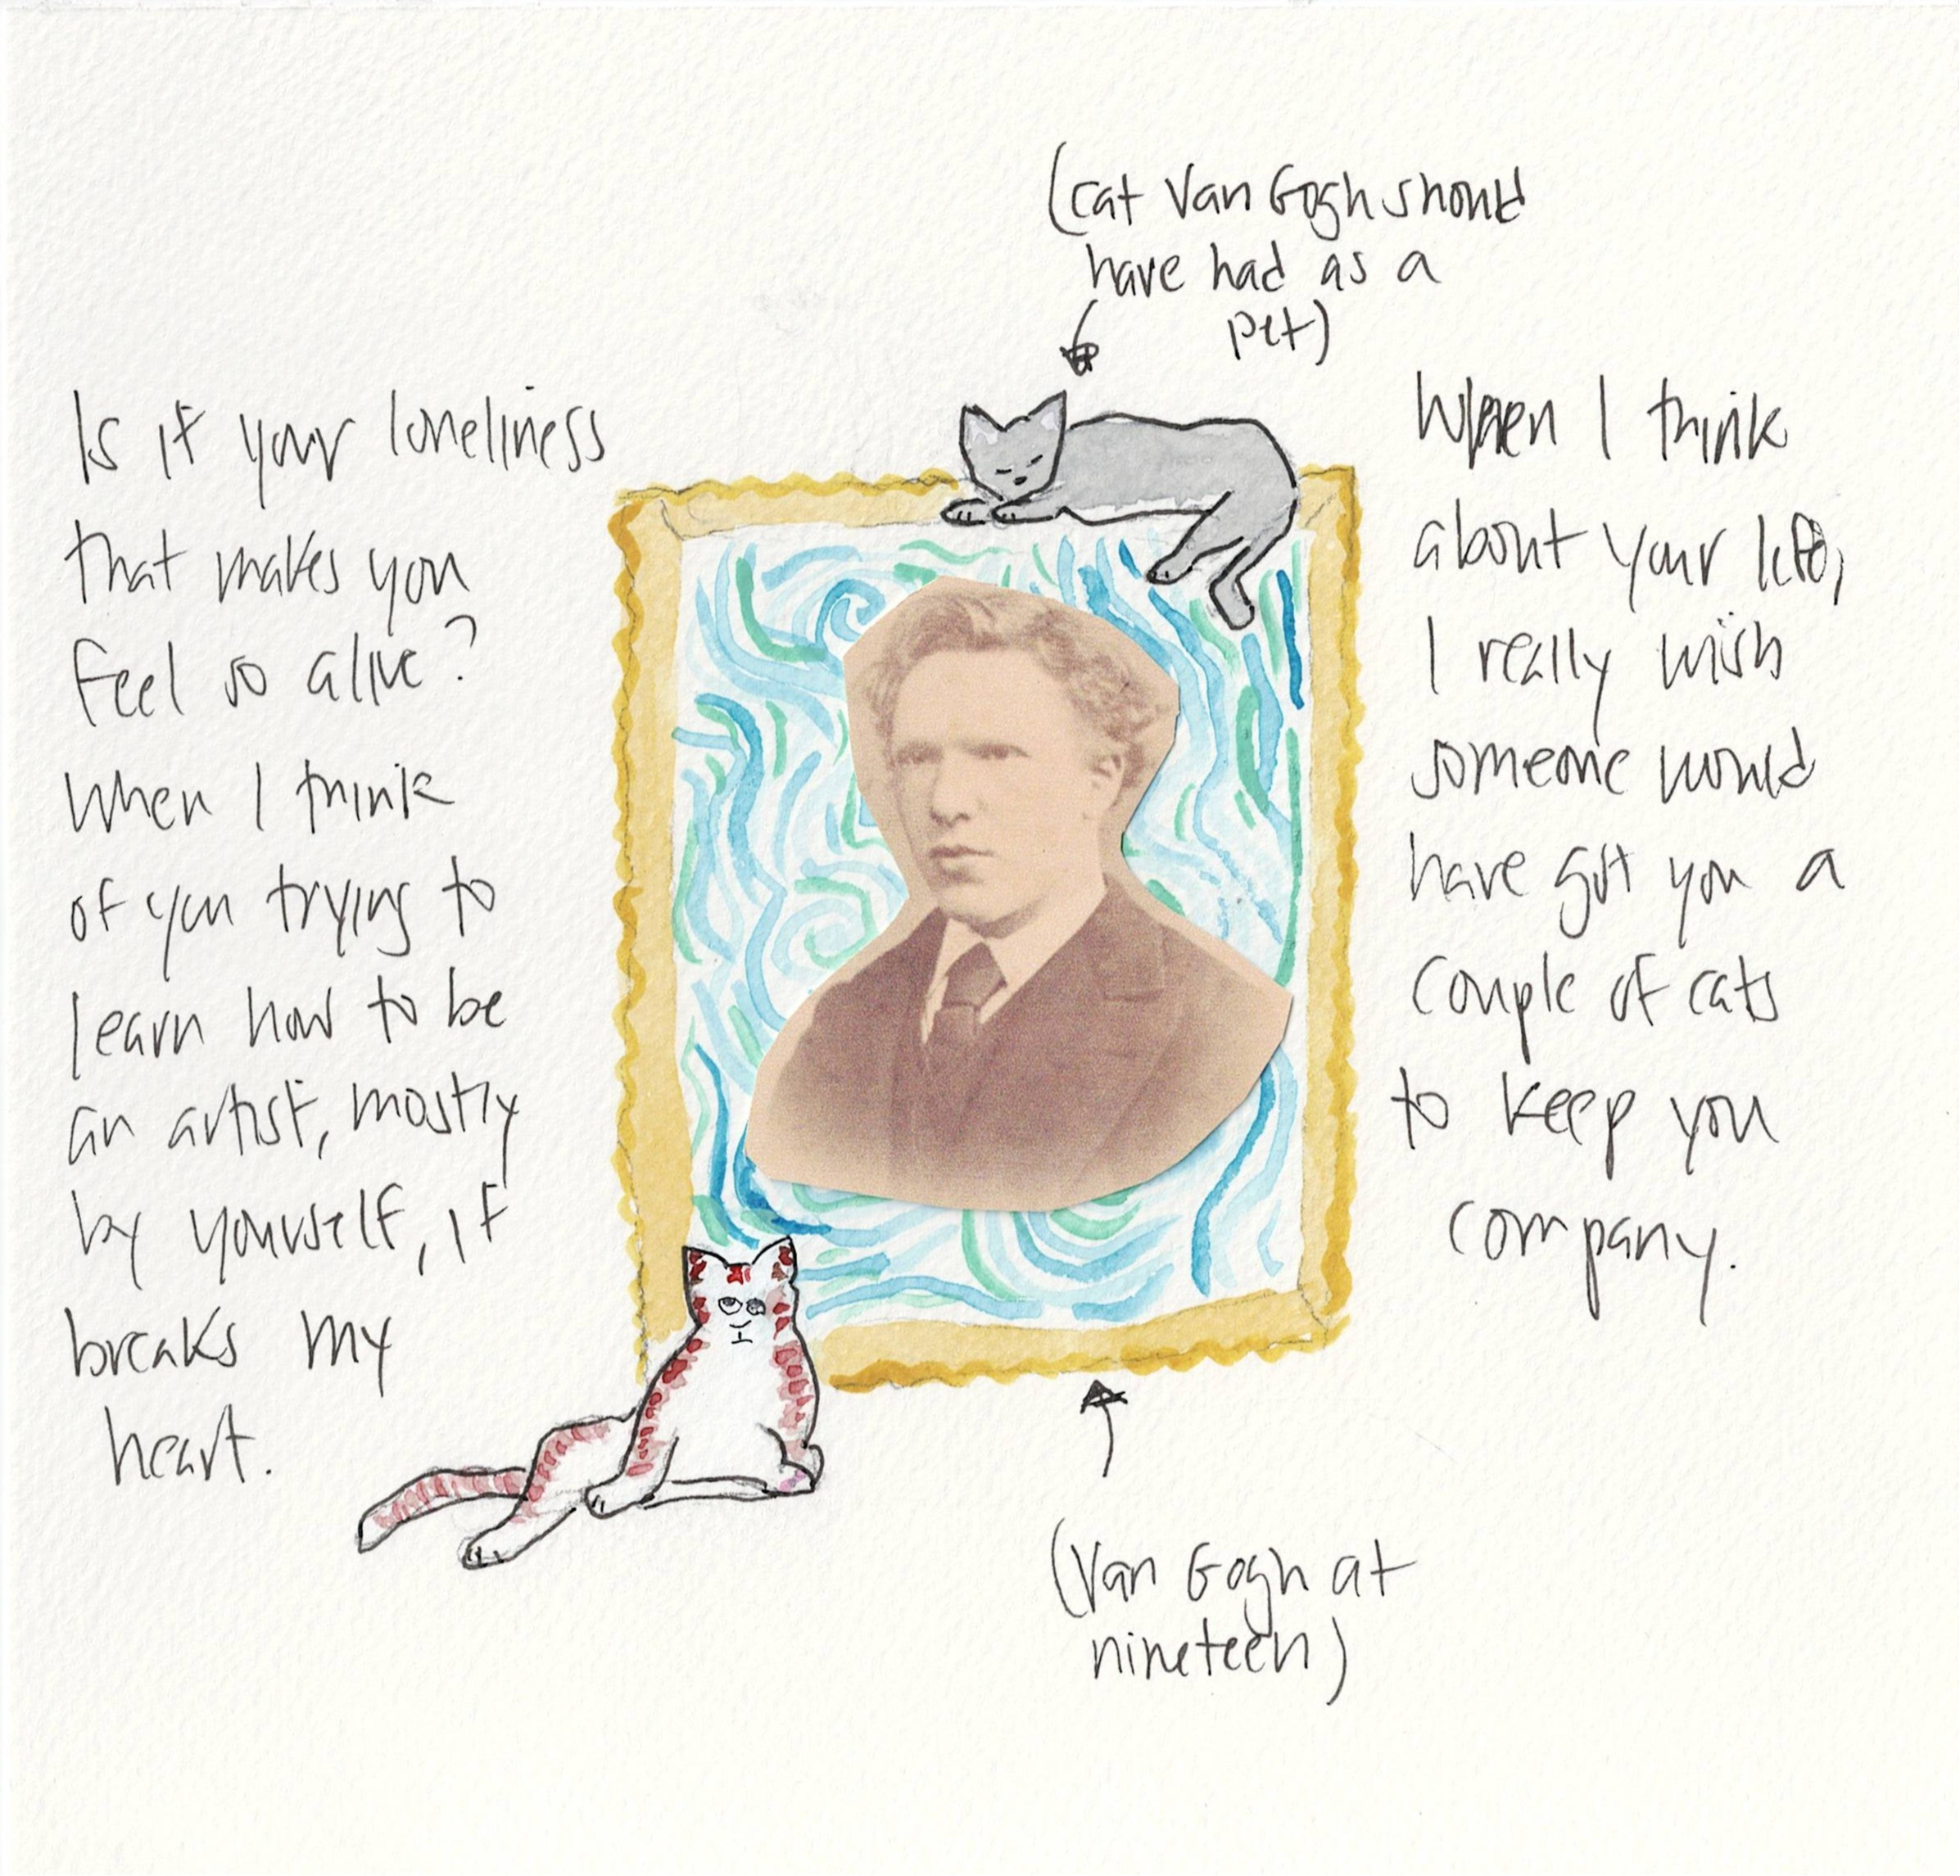 (cat Van Gogh should
have had as a
pet)
Is it your loneliness
that makes you
feel so alive?
When I think
of you trying to
learn how to be
an artist, mostly
by yourself, it
breaks my
heart.
When I think
about your life,
I really wish
someone would
have got you a
couple of cats
to keep you
company.
(Van Gogh at
nineteen)